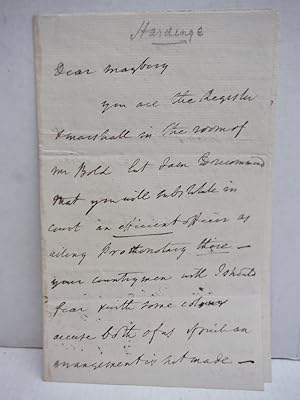 Hardinge
Dear Maybery
you are the Register
& marshall in the room of
Mr Bold but I am to recommend
that you will substitute in
court an efficient officer as
acting Prothonotary there —
your countrymen will I should
fear with some colour
accuse both of us if such an
arrangement is not made —